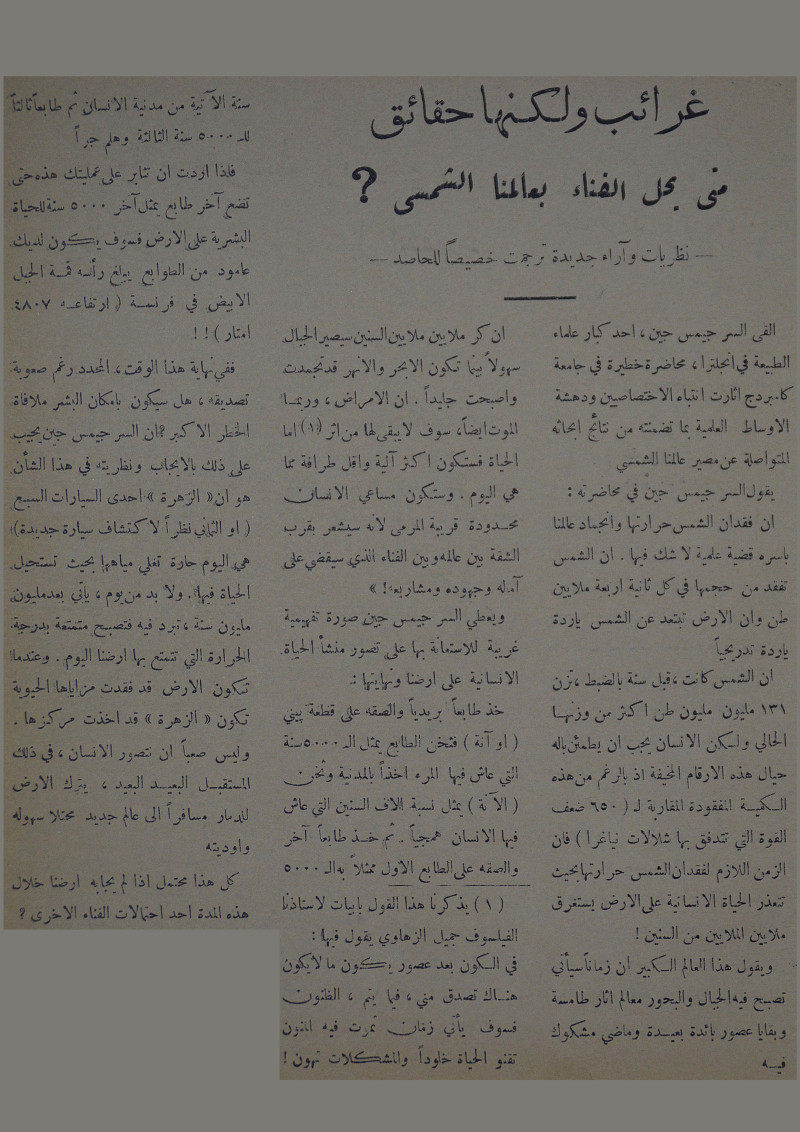 غرائب ولكنها حقائق
متى يحل الفناء بعالمنا الشمسي ؟
— نظريات وآراء جديدة ترجمت خصيصاً للحاصد —
القى السر جيمس جين ، احد كبار علماء
الطبيعة في انجلترا ، محاضرة خطيرة في جامعة
كامبردج اثارت انتباه الاختصاصيين ودهشة
الاوساط العلمية بما تضمنته من نتائج ابحاثه
المتواصلة عن مصير عالمنا الشمسي
يقول السر جيمس جين في محاضرته :
ان فقدان الشمس حرارتها وانجماد عالمنا
باسره قضية علمية لا شك فيها . ان الشمس
تفقد من حجمها في كل ثانية اربعة ملايين
طن وان الارض تبتعد عن الشمس ياردة
ياردة تدريجياً
ان الشمس كانت ، قبل سنة بالضبط ، تزن
١٣١ مليون مليون طن اكثر من وزنها
الحالي ولكن الانسان يجب ان يطمئن باله
حيال هذه الارقام المخيفة اذ بالرغم من هذه
الكمية المفقودة المقاربة لـ ( ٦٥٠ ضعف
القوة التي تتدفق بها شلالات نياغرا ) فان
الزمن اللازم لفقدان الشمس حرارتها بحيث
تتعذر الحياة الانسانية على الارض يستغرق
ملايين الملايين من السنين !
ويقول هذا العالم الكبير ان زماناً سيأتي
تصبح فيه الجبال والبحور معالم اثار طامسة
وبقايا عصور بائدة بعيدة وماضي مشكوك
فيه
ان كر ملايين ملايين السنين سيصير الجبال
سهولاً بينما تكون الابحر والانهر قد تجمدت
واصبحت جليداً . ان الامراض ، وربما
الموت ايضاً ، سوف لا يبقى لها من اثر (١) اما
الحياة فستكون اكثر آلية واقل طرافة مما
هي اليوم . وستكون مساعي الانسان
محدودة قريبة المرمى لانه سيشعر بقرب
الشقة بين عالمه وبين الفناء الذي سيقضي على
آماله وجهوده ومشاريعه ! »
ويعطي السر جيمس جين صورة تفهيمية
غريبة للاستعانة بها على تصور منشأ الحياة
الانسانية على ارضنا ونهايتها :
خذ طابعاً بريدياً والصقه على قطعة بيني
( او آنة ) فثخن الطابع يمثل الـ ٥٠٠٠ سنة
التي عاش فيها المرء آخذاً بالمدنية وثخن
( الآنة ) يمثل نسبة الاف السنين التي عاش
فيها الانسان همجياً . ثم خذ طابعاً آخر
والصقه على الطابع الاول ممثلاً به الـ ٥٠٠٠
( ١ ) يذكرنا هذا القول بابيات لاستاذنا
الفيلسوف جميل الزهاوي يقول فيها :
في الكون بعد عصور يكون ما لا يكون
هناك تصدق مني ، فيما يتم ، الظنون
فسوف يأتي زمان تموت فيه المنون
تقنو الحياة خلوداً والمشكلات تهون !
سنة الآتية من مدنية الانسان ثم طابعاً ثالثاً
للـ ٥٠٠٠ سنة الثالثة وهلم جراً
فاذا اردت ان تثابر على عمليتك هذه حتى
تضع آخر طابع يمثل آخر ٥٠٠٠ سنة للحياة
البشرية على الارض فسوف يكون لديك
عامود من الطوابع يبلغ رأسه قمة الجبل
الابيض في فرنسة ( ارتفاعه ٤٨٠٧
امتار ) ! !
ففي نهاية هذا الوقت ، المحدد رغم صعوبة
تصديقه ، هل سيكون بامكان البشر ملافاة
الخطر الاكبر ؟ ان السر جيمس جين يجيب
على ذلك بالايجاب ونظريته في هذا الشأن
هو ان « الزهرة » احدى السيارات السبع
( او الثماني نظراً لاكتشاف سيارة جديدة )
هي اليوم حارة تغلي مياهها بحيث تستحيل
الحياة فيها . ولا بد من يوم ، يأتي بعد مليون
مليون سنة ، تبرد فيه فتصبح متمتعة بدرجة
الحرارة التي تتمتع بها ارضنا اليوم . وعندما
تكون الارض قد فقدت مزاياها الحيوية
تكون « الزهرة » قد اخذت مركزها .
وليس صعباً ان نتصور الانسان ، في ذلك
المستقبل البعيد البعيد ، يترك الارض
للدمار مسافراً الى عالم جديد محتلا سهوله
واوديته
كل هذا محتمل اذا لم يجابه ارضنا خلال
هذه المدة احد احتمالات الفناء الاخرى ؟